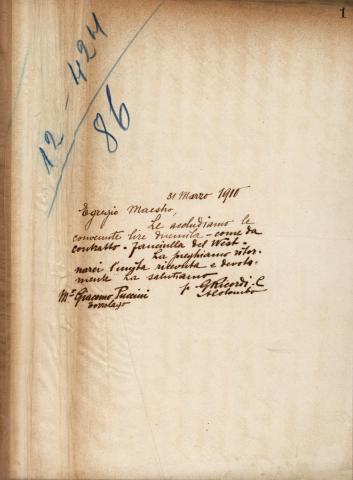 1
12-424
86
31 Marzo 1910
Egregio Maestro,
Le accludiamo le
convenute lire duemila - come da
contratto - Fanciulla del West -
La preghiamo ritor-
narci l'unita ricevuta e devota-
mente La salutiamo
Mº Giacomo Puccini
p. G. Ricordi & C.